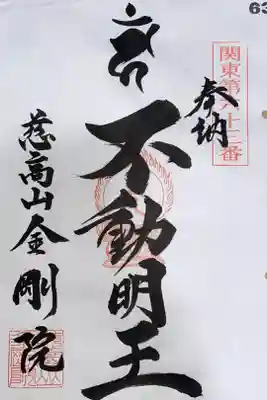 63
関東第六十三番
奉納
不動明王
慈高山金剛院